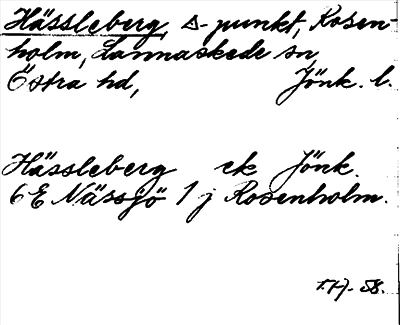 Hässleberg, △-punkt, Rosen-
holm, Lannaskede sn,
Östra hd, Jönk. l.
Hässleberg ek Jönk.
6E Nässjö 1 j Rosenholm.
T.H. 58.